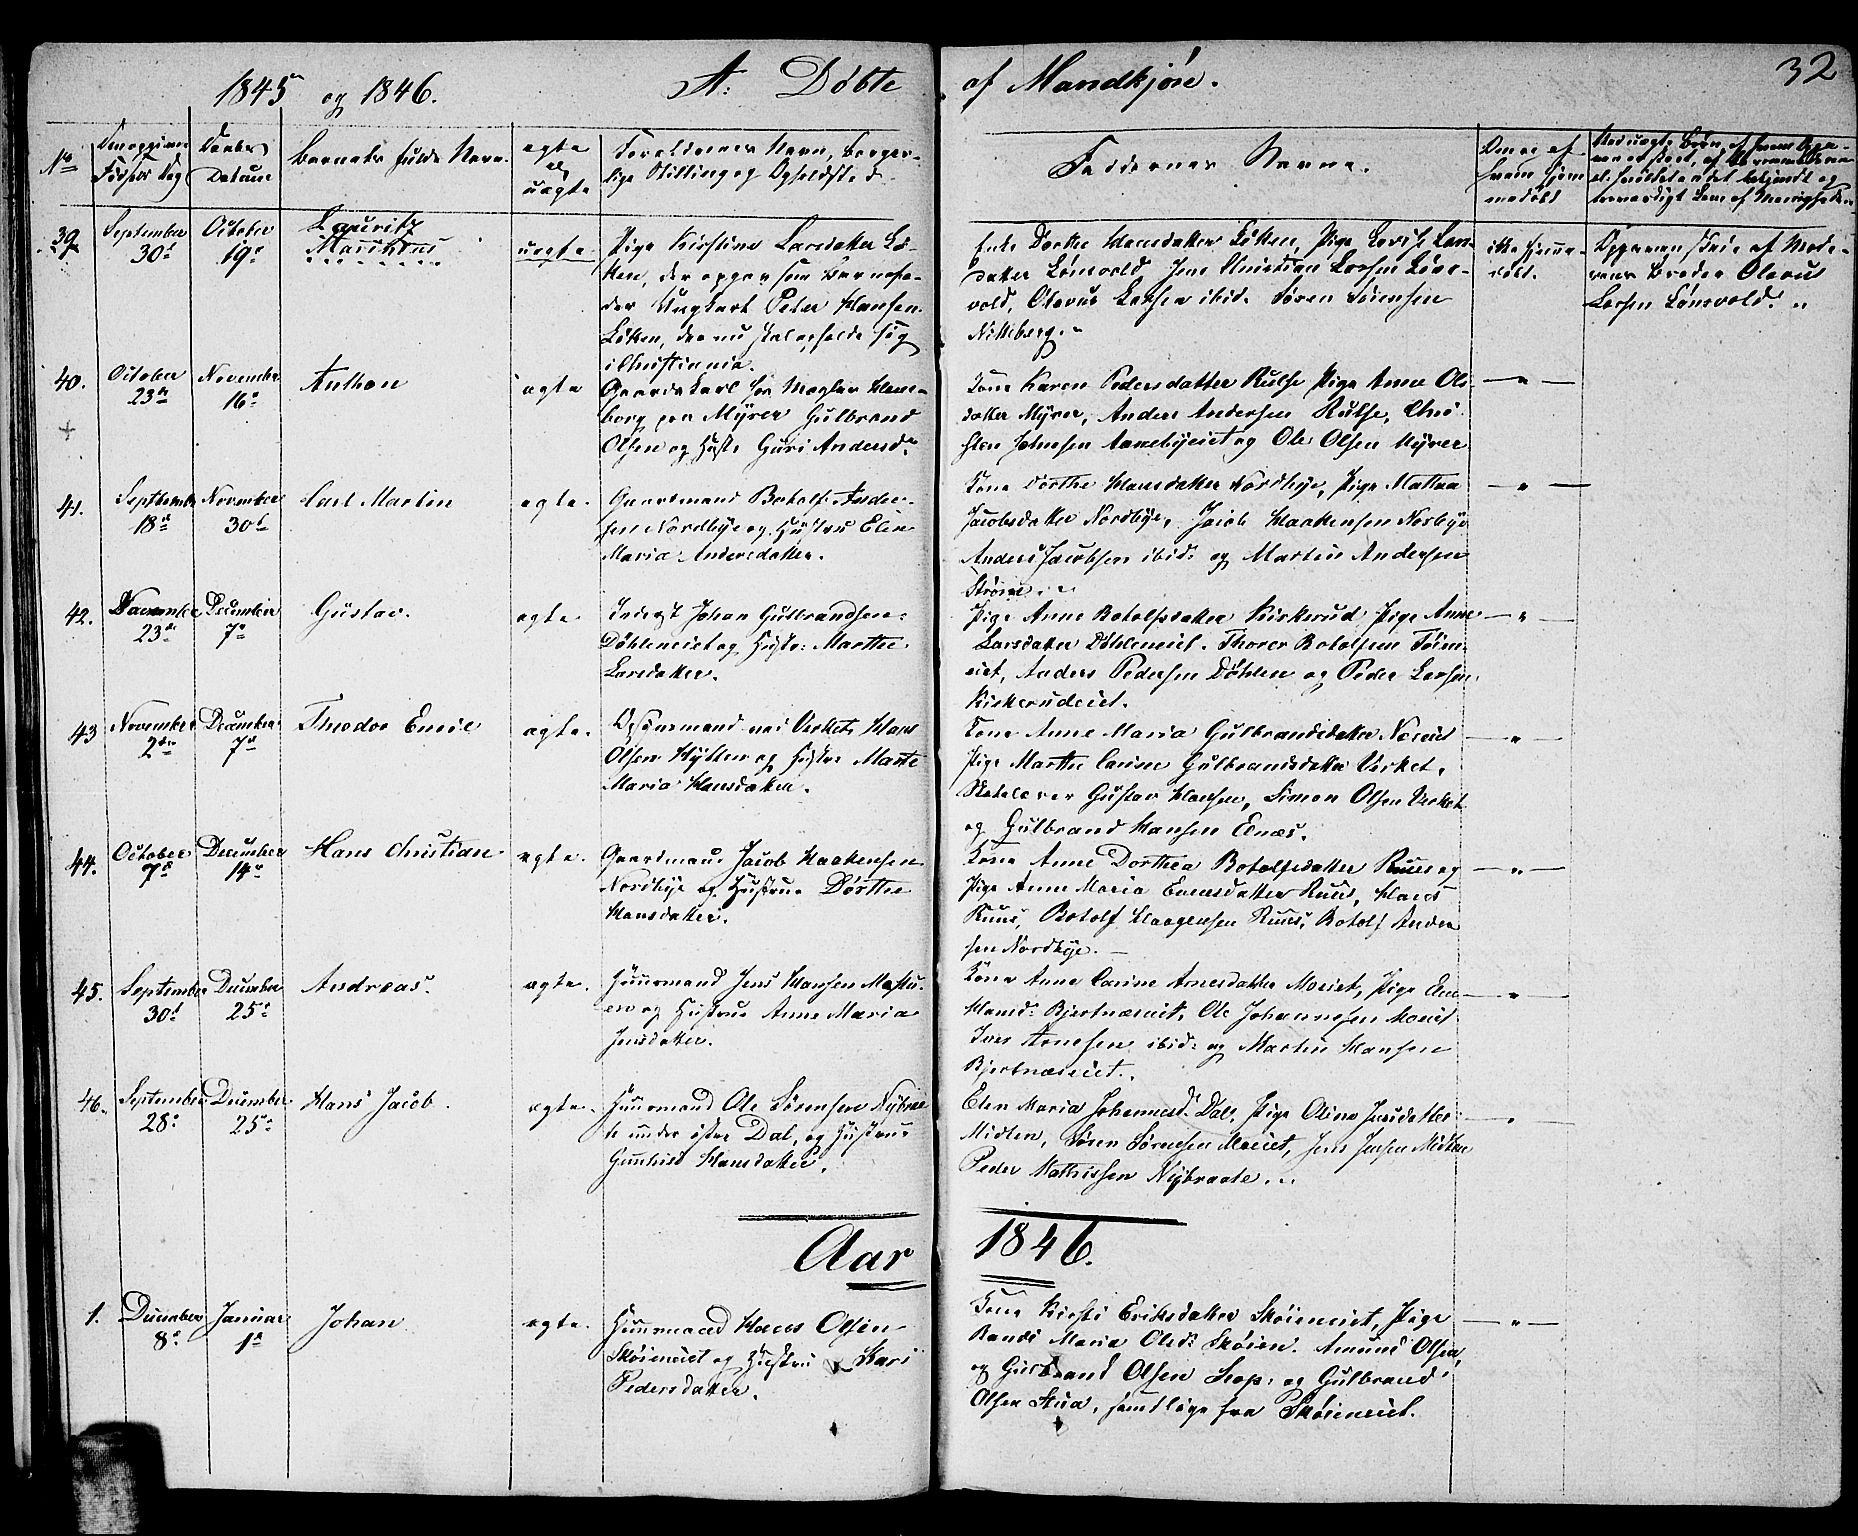 1845 og 1846. A: Døbte af Mandkjøn. 32
No Barnets fulde Navn. ægte el uægte Forældrenes Navn, Borger-
lige Stilling og Opholdssted.
Faddernes Navne.
Døbens Datum
39. September 30d October 19d Lauritz Marthinus uægte Pige Kirstine Larsdatter Lø-
ken, der opgav som Barnefa-
der Ungkarl Peter Hansen
Løken, der nu skal opholde sig
i Christiania.
Enke Dorthe Hansdatter Løken, Pige Lovise Lars-
datter Lønsvold, Jens Christian Larsen Løns-
vold, Olavus Larsen ibid. Søren Sørensen
Nitteberg.
ikke hjemme-
døbt.
af Mode-
rens Broder Olavus
Larsen Lønsvold.
40. October 23de November 16d Anthon ægte
paa Myrer Gulbrand
Olsen og Hustr. Guri Andersd.
Kone Karen Pedersdatter Rulse, Pige Anne Ols-
datter Myrer, Anders Andersen Rulse, Chri-
sten Johnsen og Ole Olsen Myrer
41. September 18d November 30d Carl Martin ægte. Gaardmand Botolf Ander-
sen Nordbye og Hustru Elen
Maria Andersdatter.
Kone Dorthe Hansdatter Nordbye, Pige Mathea
Jacobsdatter Nordbye, Jacob Haakensen Norbye
Anders Jacobsen ibid: og Martin Andersen
Strøm.
42. November 23de December 7d Gustav. ægte. Inderst Johan Gulbrandsen
Døhleneiet og Hustr: Marthe
Larsdatter.
Pige Anne Botolfsdatter Kirkerud, Pige Anne
Larsdatter Døhleneiet. Thorer Botolfsen
eiet, Anders Pedersen Døhlen og Peder Larsen
Kirkerudeiet.
43 November 2den December 7d Theodor Emil ægte. ved Værket Hans
Olsen Hytten og Hustru Marte
Maria Hansdatter.
Kone Anne Maria Gulbrandsdatter Næseiet
Pige Marthe Carine Gulbrandsdatter Verket.
Skolelærer Gustav Hansen, Simon Olsen Verket
og Gulbrand Hansen Enæs.
44. October 7d December 14d Hans Christian ægte. Gaardmand Jacob Haakensen
Nordbye og Hustrue Dorthe
Hansdatter.
Kone Anne Dorthea Botolfsdatter Ruus og
Pige Anne Maria Evensdatter Ruus, Hans
Ruus, Botolf Haagensen Ruus, Botolf Ander-
sen Nordbye.
45. September 30d December 25d Andreas. ægte. Huusmand Jens Hansen
og Hustrue Anne Maria
Jensdatter.
Kone Anne Carine Arnesdatter Moeiet, Pige
Hansd: Bjertnæseiet, Ole Johannesen Moeiet
Iver Arnesen ibid: og Martin Hansen
Bjertnæseiet.
46. September 28d December 25d Hans Jacob. ægte. Huusmand Ole Sørensen Nybraa-
te under østre Dal, og Hustrue
Gunhild Hansdatter.
Elen Maria Johannesd. Dal, Pige Oline Jensdatter
Midten, Søren Sørensen Moeiet, Jens Jensen Midten
Peder Mathissen Nybraate.
Aar 1846.
1. December 8d Januar 1d Johan ægte. Huusmand Hans Olsen
Skøieneiet og Hustrue Kari
Pedersdatter.
Kone Kirsti Eriksdatter Skøieneiet, Pige
Randi Maria Olsd: Skøien. Amund Olsen,
og Gulbrand Olsen Hop: og Gulbrand
Olsen Stua, samtlige fra Skøieneiet.